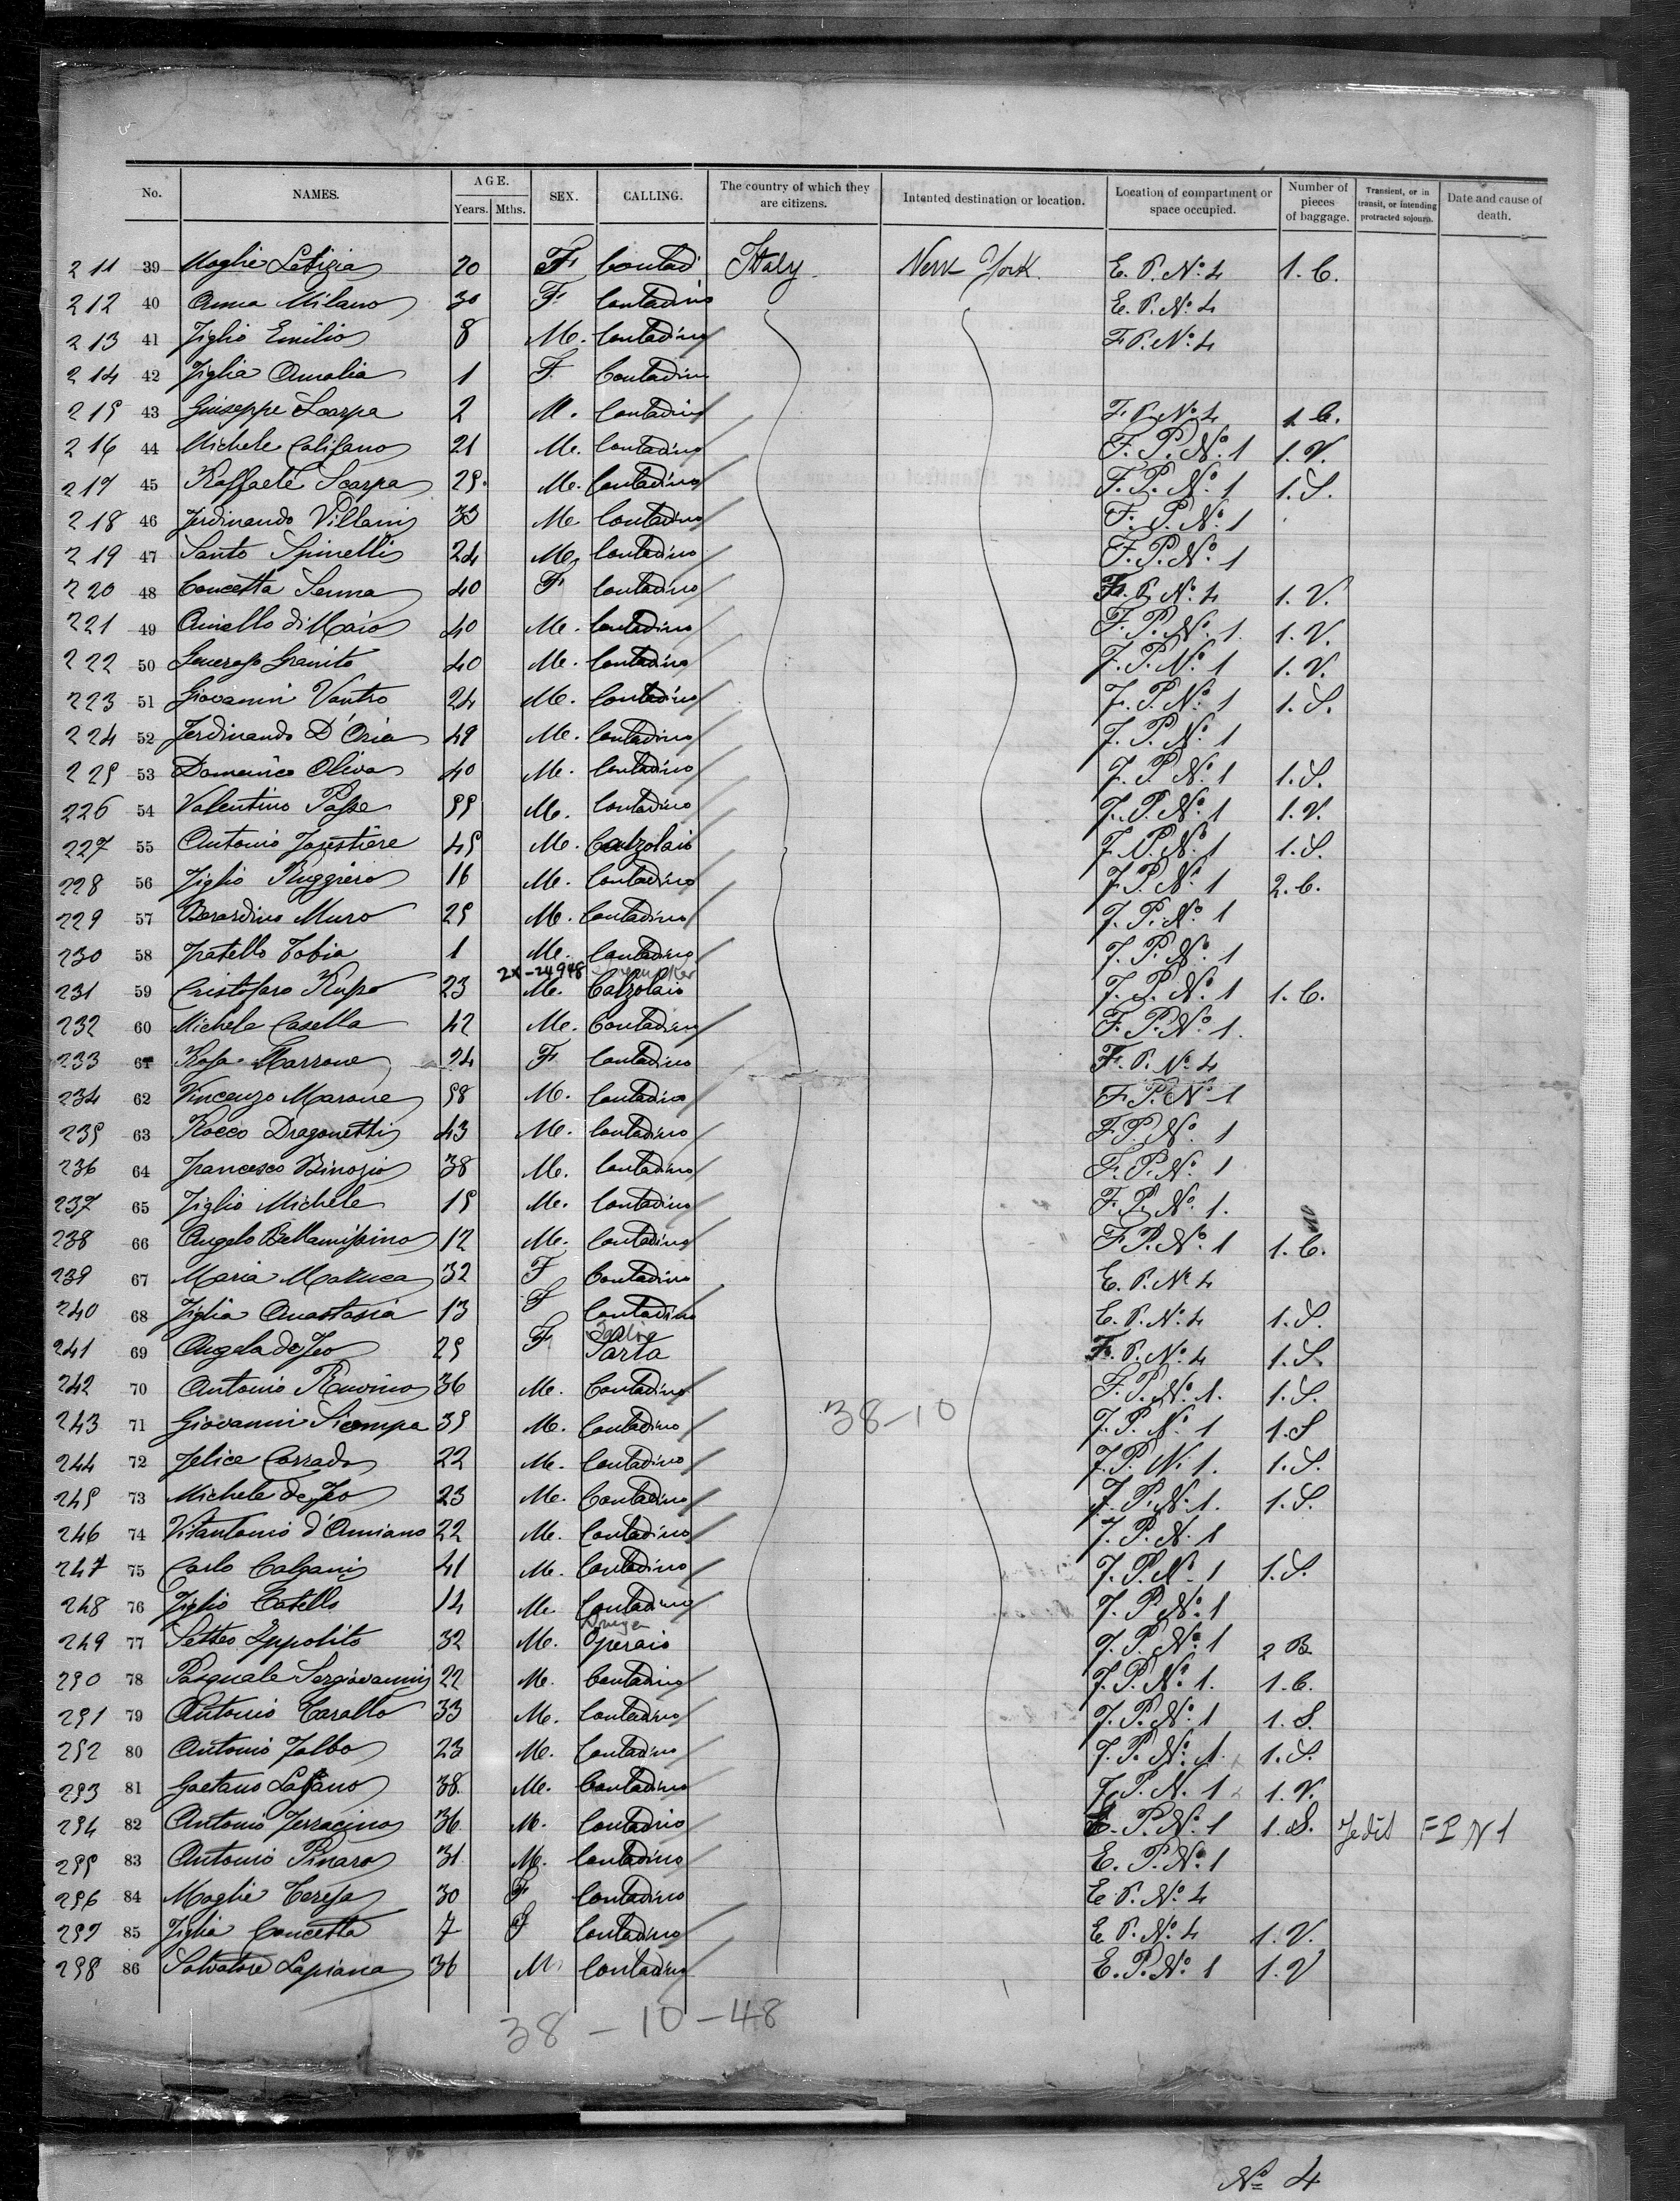 No. NAMES. AGE. Years. Mths. SEX. CALLING. The country of which they are citizens. Intented destination or location. Location of compartment or space occupied. Number of pieces of baggage. Transient, or in transit, or intending protracted sojourn. Date and cause of death.
211 39 Moglie Letizia 20 F. Contad Italy New York. E. P. No. 4 1. C.
212 40 Anna Milano 30 F. Contadino E. P. No. 4
213 41 Figlio Emilio 8 M. Contadino F P. No. 4
214 42 Figlia Amalia 1 F. Contadino
215 43 Giuseppe Scarpa 2 M. Contadino F. P. No. 4 1 C.
216 44 Michele Califano 21 M. Contadino F. P. No. 1 1. V.
217 45 Raffaele Scarpa 25. M. Contadino F. P. No. 1 1. S.
218 46 Ferdinando Villani 33 M. Contadino F. P. No. 1
219 47 Santo Spinelli 24 M. Contadino F. P. No. 1
220 48 Concetta Senna 40 F. Contadino F. P. No. 4 1. V.
221 49 Aniello di Maio 40 M. Contadino F. P. No. 1. 1. V.
222 50 Generoso Granito 40 M. Contadino F. P. No. 1 1. V.
223 51 Giovanni Vantro 24 M. Contadino F. P. No. 1 1. S.
224 52 Ferdinando D'Oria 49 M. Contadino F. P. No. 1
225 53 Domenico Oliva 40 M. Contadino F. P. No. 1 1. S.
226 54 Valentino 55 M. Contadino F. P. No. 1 1. V.
227 55 Antonio Forestiere 45 M. Calzolaio F. P. No. 1 1. S.
228 56 Figlio Ruggiero 16 M. Contadino F. P. No. 1 2. C.
229 57 Berardino Muro 25 M. Contadino F. P. No. 1
230 58 Fratello Tobia 1 M. Contadino F. P. No. 1
2x-24948
231 59 Cristofaro Russo 23 M. Calzolaio F. P. No. 1 1. C.
232 60 Michele Casella 42 M. Contadino F. P. No. 1.
233 61 Rosa Marrone 24 F. Contadino F. P. No. 4
234 62 Vincenzo Marone 58 M. Contadino F. P. No. 1
235 63 Rocco Dragonetti 43 M. Contadino F. P. No. 1
236 64 Francesco Binozio 38 M. Contadino F. P. No. 1
237 65 Figlio Michele 15 M. Contadino F. P. No. 1.
238 66 Angelo 12 M. Contadino F P. No. 1 1. C.
239 67 Maria Mazzuca 32 F Contadino E. P. No. 4
240 68 Figlia Anastasia 13 F Contadino E. P. No. 4 1. S.
241 69 Angela de Feo 25 F. Sarta F. P. No. 4 1. S.
242 70 Antonio Ruvino 36 M. Contadino F. P. No. 1. 1. S.
243 71 Giovanni Sicompa 35 M. Contadino 38-10 F. P. No. 1 1. S
244 72 Felice Corrado 22 M. Contadino F. P. No. 1. 1. S.
245 73 Michele de Feo 23 M. Contadino F. P. No. 1. 1. S.
246 74 Vitantonio d'Amiano 22 M. Contadino F. P. N. 1
247 75 Carlo Calzani 41 M. Contadino F. P. No. 1 1. S.
248 76 Figlio Catello 14 M. Contadino F. P. No. 1
249 77 Setteo Ippolito 32 M. Operaio F. P. No. 1 2 B.
250 78 Pasquale Sergiovanni 22 M. Contadino F. P. No. 1. 1. C.
251 79 Antonio Carallo 33 M. Contadino F. P. No. 1 1. S.
252 80 Antonio Falbo 23 M. Contadino F. P. No. 1. 1. S.
253 81 Gaetano Lafano 38. M. Contadino F. P. N. 1 1. V.
254 82 Antonio Ferracino 36 M. Contadino E. P. No. 1 1. S. F P N 1
255 83 Antonio Pinaro 31 M. Contadino E. P. No. 1
256 84 Moglie Teresa 30 F Contadino E P. No. 4
257 85 Figlia Concetta 7 F Contadino E. P. No. 4 1. V.
258 86 Salvatore Lapiana 36 M. Contadino E. P. No. 1 1. V
38-10-48
No 4